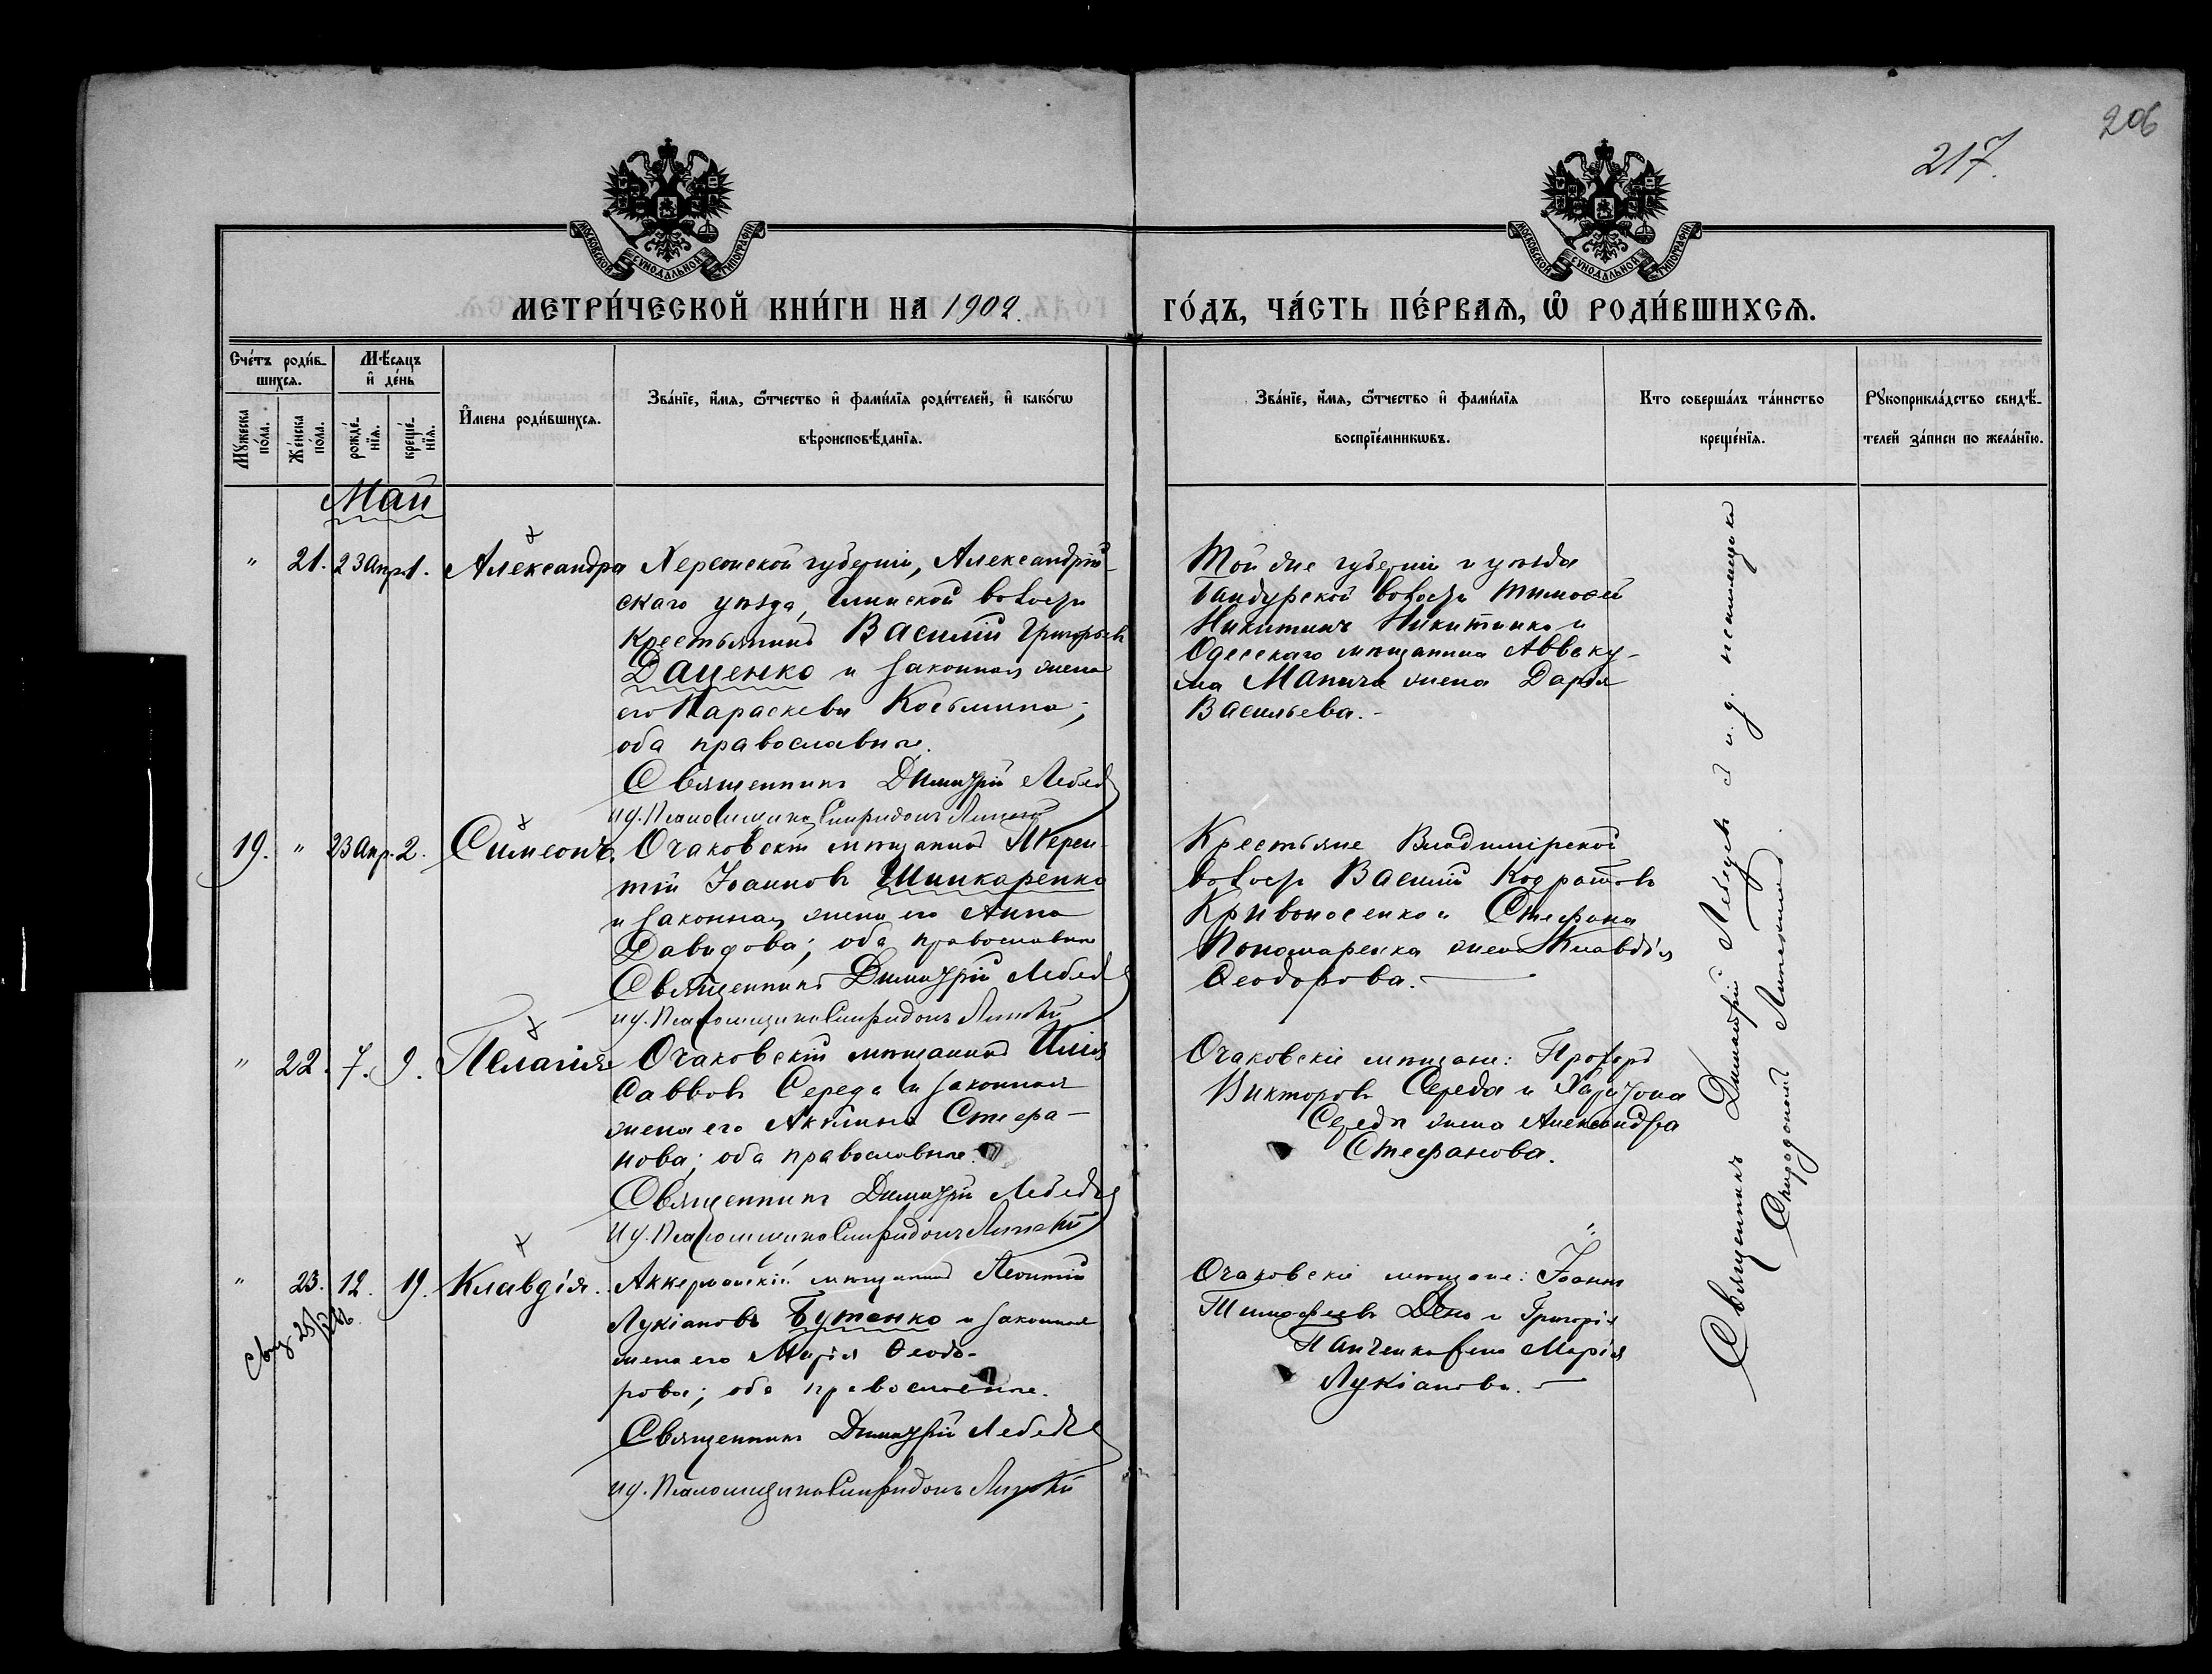 206
217.
МОСКОВСКОЙ СѴНОДАЛЬНОЙ ТИПОГРАФІИ
МОСКОВСКОЙ СѴНОДАЛЬНОЙ ТИПОГРАФІИ
МЕТРИ́ЧЕСКОЙ КНИ́ГИ НА 1902.
ГО́ДЪ, ЧА́СТЬ ПЕ́РВАѦ, Ѡ҆ РОДИ́ВШИХСѦ.
Сче́тъ роди́в-
шихсѧ.
Мѣ́сѧцъ
и҆ де́нь
Мꙋ́жеска
по́ла.
Же́нска
по́ла.
рожде́-
нїѧ.
креще́-
нїѧ.
И҆мена роди́вшихсѧ.
Зва́нїе, и҆́мѧ, ѻ҆́тчество и҆ фами́лїѧ роди́телей, и҆ како́гѡ
вѣроисповѣ́данїѧ.
Зва́нїе, и҆́мѧ, ѻ҆́тчество и҆ фами́лїѧ
воспрїе́мникѡвъ.
Кто соверша́лъ та́инство
креще́нїѧ.
Рꙋкоприкла́дство свидѣ́-
телей за́писи по жела́нїю.
Май
" 21. 23 Апр. 1. Александра
Херсонской губерніи, Александрій-
скаго уѣзда, Глинской волости
крестьянинъ Василій Григорьевъ
Даценко и законная жена
его Параскева Косьмина;
оба православные.
Священникъ Димитрій Лебедевъ
и.д. Псаломщика Спиридонъ
Той же губерніи и уѣзда
Бандурской волости Тимофей
Никитинъ Никитенко и
Одесскаго мѣщанина Авваку-
ма жена Дарья
Васильева.-
19. " 23 Апр. 2. Симеонъ.
Очаковскій мѣщанинъ Терен-
тій Іоанновъ Шинкаренко
и законная жена его Анна
Давидова; оба православные
Священникъ Димитрій Лебедевъ
и.д. Псаломщика Спиридонъ
Крестьяне Владимірской
волости Василій Кодратовъ
Кривоносенко и Стефана
Пономаренка жена Клавдія
Ѳеодорова.
" 22. 7. 9. Пелагія
Очаковскій мѣщанинъ Илія
Саввовъ Середа и законная
жена его Акилина Стефа-
нова; оба православные.
Священникъ Димитрій Лебедевъ
и.д. Псаломщика Спиридонъ
Очаковскіе мѣщане: Прохоръ
Викторовъ Середа и Харитона
Середы жена Александра
Стефанова.
" 23. 12. 19. Клавдія.
Аккерманскій мѣщанинъ Леонтій
Лукіановъ Бутенко и законная
жена его Марія Ѳеодо-
рова; оба православные.
Священникъ Димитрій Лебедевъ
и.д. Псаломщика Спиридонъ
Очаковскіе мѣщане: Іоаннъ
Тимофеевъ и Григорія
Панченка жена Марія
Лукіанова.
Священникъ Димитрій Лебедевъ и и.д. псаломщика
Спиридонъ